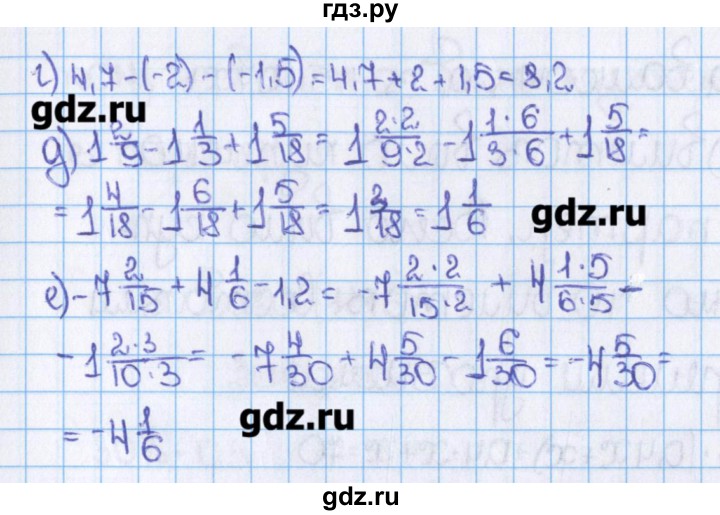 гдз.ру
г) 4,7 - (-2) - (-1,5) = 4,7 + 2 + 1,5 = 8,2.
gdz.ru
д) 1 2/9 - 1 1/3 + 1 5/18 = 1 2·2/9·2 - 1 1·6/3·6 + 1 5/18 =
= 1 4/18 - 1 6/18 + 1 5/18 = 1 3/18 = 1 1/6
gdz.ru
е) -7 2/15 + 4 1/6 - 1,2 = -7 2·2/15·2 + 4 1·5/6·5 -
- 1 2·3/10·3 = -7 4/30 + 4 5/30 - 1 6/30 = -4 5/30 =
gdz.ru
= -4 1/6
gdz.ru